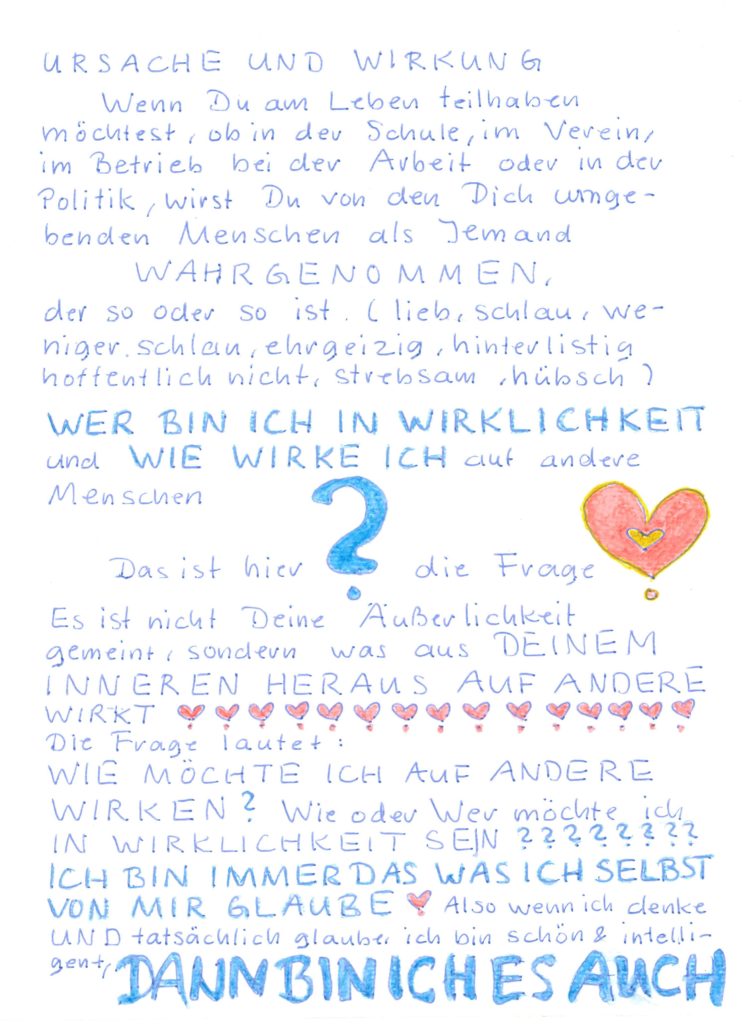 URSACHE UND WIRKUNG
Wenn Du am Leben teilhaben
möchtest, ob in der Schule, im Verein,
im Betrieb bei der Arbeit oder in der
Politik, wirst Du von den Dich umge-
benden Menschen als Jemand
WAHRGENOMMEN,
der so oder so ist. (lieb, schlau, we-
niger schlau, ehrgeizig, hinterlistig
hoffentlich nicht, strebsam, hübsch)
WER BIN ICH IN WIRKLICHKEIT
und WIE WIRKE ICH auf andere
Menschen ?
Das ist hier die Frage
Es ist nicht Deine Äußerlichkeit
gemeint, sondern was aus DEINEM
INNEREN HERAUS AUF ANDERE
WIRKT
Die Frage lautet:
WIE MÖCHTE ICH AUF ANDERE
WIRKEN? Wie oder Wer möchte ich
IN WIRKLICHKEIT SEIN ????????
ICH BIN IMMER DAS WAS ICH SELBST
VON MIR GLAUBE Also wenn ich denke
UND tatsächlich glaube, ich bin schön & intelli-
gent, DANN BIN ICH ES AUCH